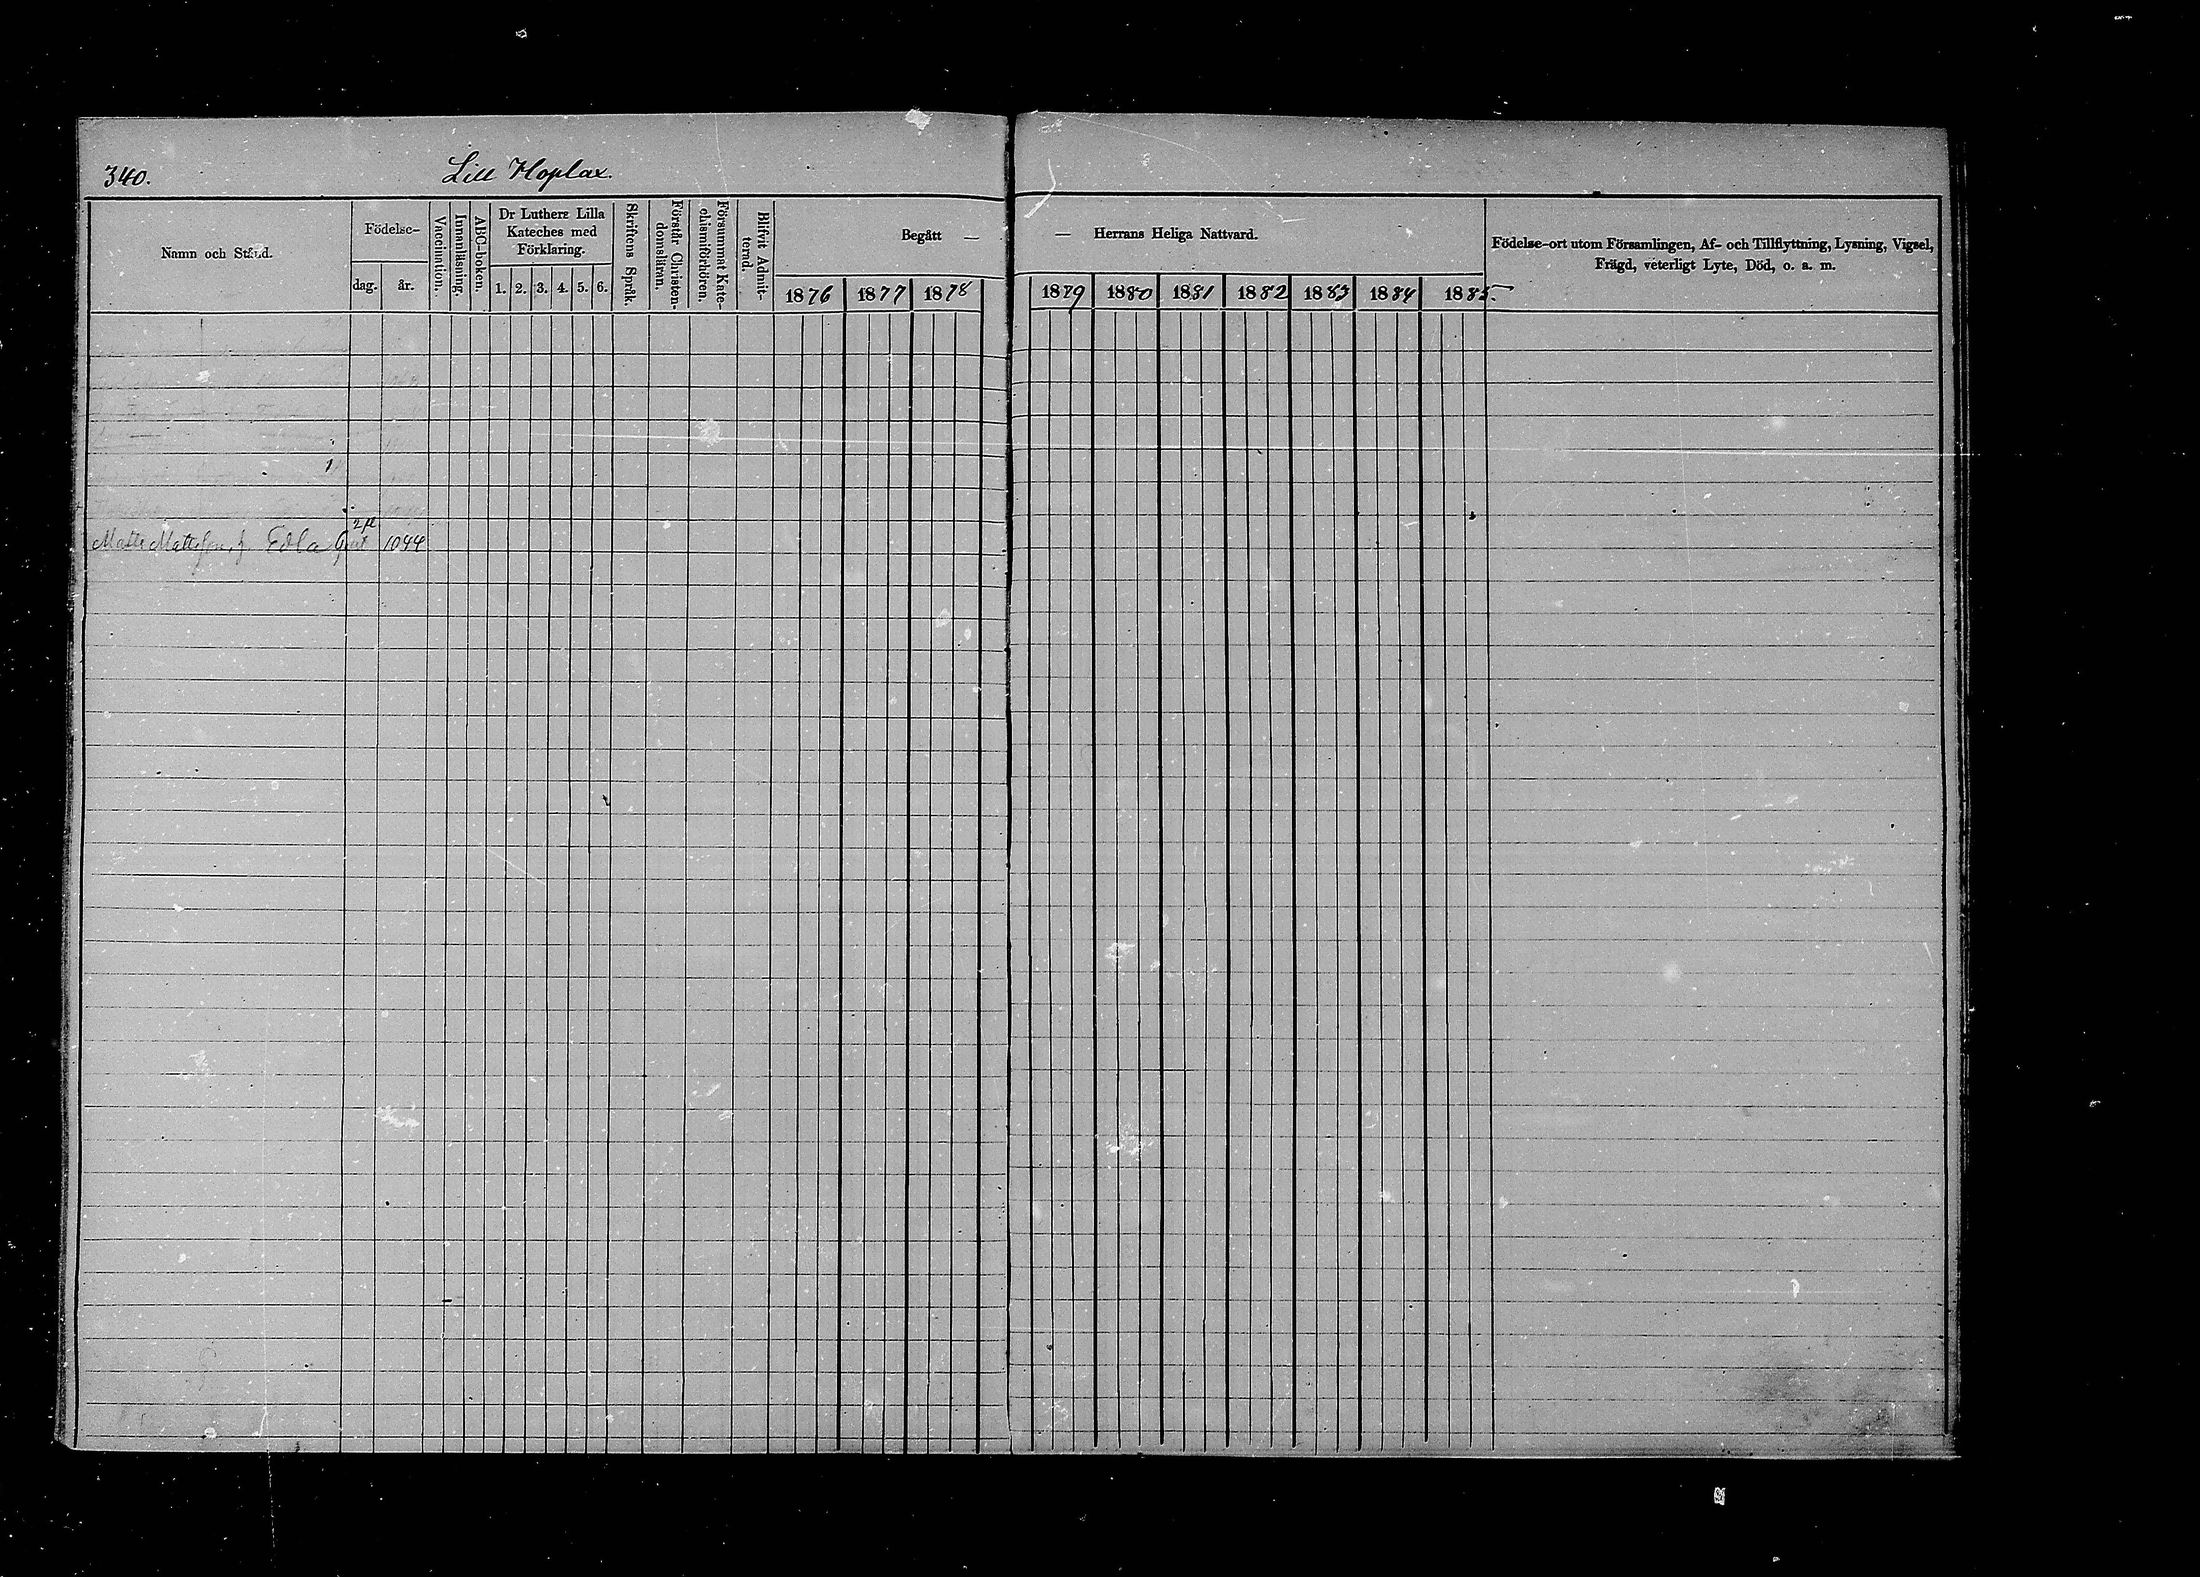 340. Lill Hoplax.
Namn och Stånd.
Födelse-
dag.
år.
Vaccination.
Innanläsning.
ABC-boken.
Dr Luthers Lilla
Kateches med
Förklaring.
1. 2. 3. 4. 5. 6.
Skriftens Språk.
Förstår Christen-
domsläran.
Försummat Kate-
chismiförhören.
Blifvit Admit-
terad.
Begått —
1876 1877 1878
— Herrans Heliga Nattvard.
1879 1880 1881 1882 1883 1884 1885.
Födelse-ort utom Församlingen, Af- och Tillflyttning, Lysning, Vigsel,
Frägd, veterligt Lyte, Död, o. a. m.
Edla 1844